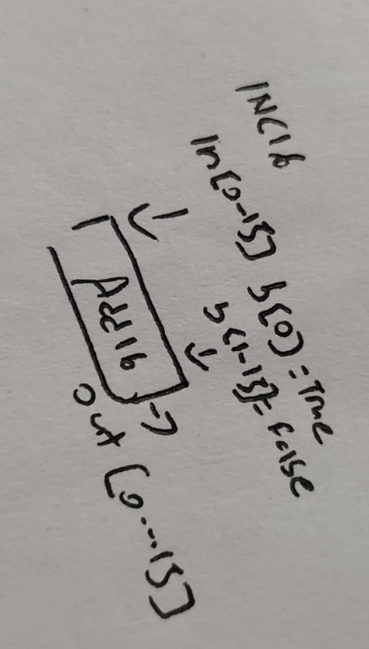 INC16
In[0-15] b[0]=True
b[1-15]=False
Add16
Out [0...15]